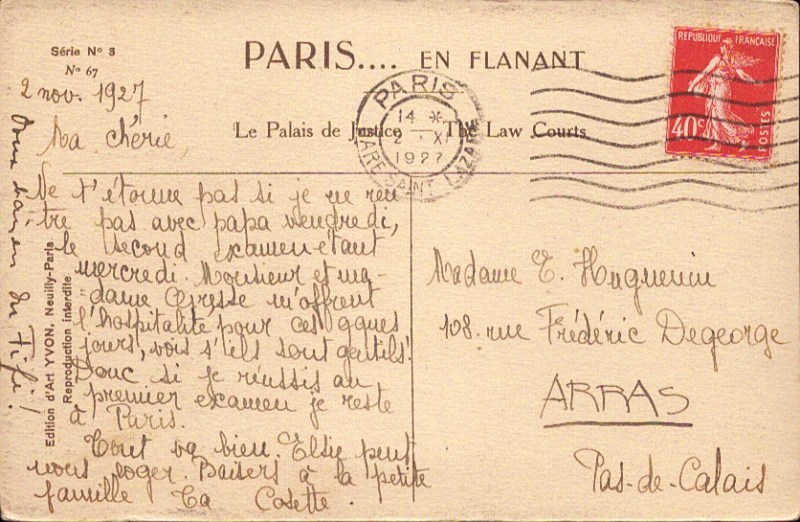 Série Nº 3
Nº 67
PARIS.... EN FLANANT
Le Palais de Justice — The Law Courts
REPUBLIQUE FRANÇAISE
40c
POSTES
PARIS
14 *
2 · XI
1927
GARE SAINT LAZARE
Edition d'Art YVON, Neuilly-Paris
Reproduction interdite
2 nov. 1927
Ma chérie,
Ne t'étonne pas si je ne ren
tre pas avec papa vendredi,
le second examen étant
mercredi. Monsieur et ma-
dame m'offrent
l'hospitalité pour ces qques
jours, vois s'ils sont gentils!
Donc si je réussis au
premier examen je reste
à Paris.
Tout va bien. Elsie peut
nous loger. Baisers à la petite
famille Ta Cosette.
Doux baiser du Fifi!
Madame E. Huguenin
108. rue Frédéric Degeorge
ARRAS
Pas-de-Calais